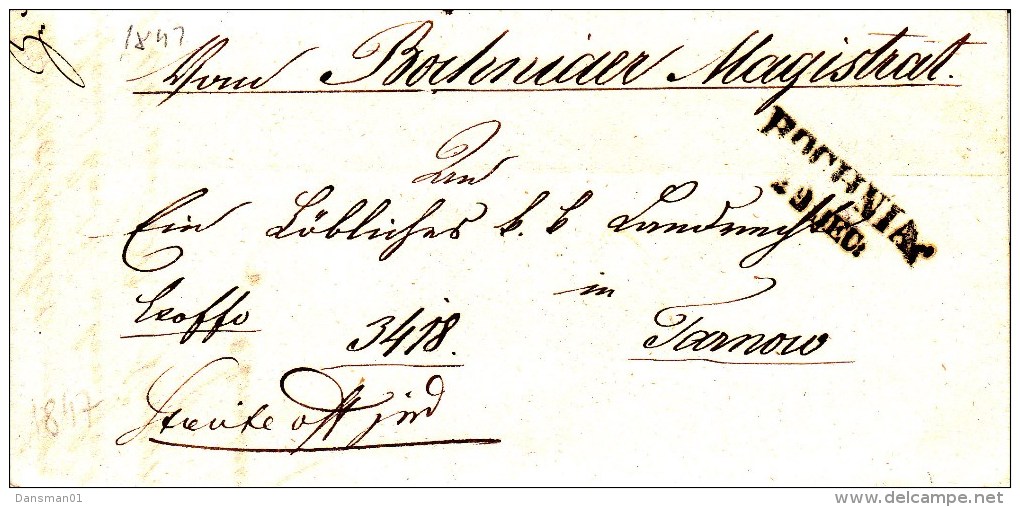 1847
Vom Bochniaer Magistrat.
BOCHNIA
29 DEC:
An
Ein Löbliches k. k. Landrecht
in
Exoffo
3418.
Tarnow
1847
Dansman01
www.delcampe.net